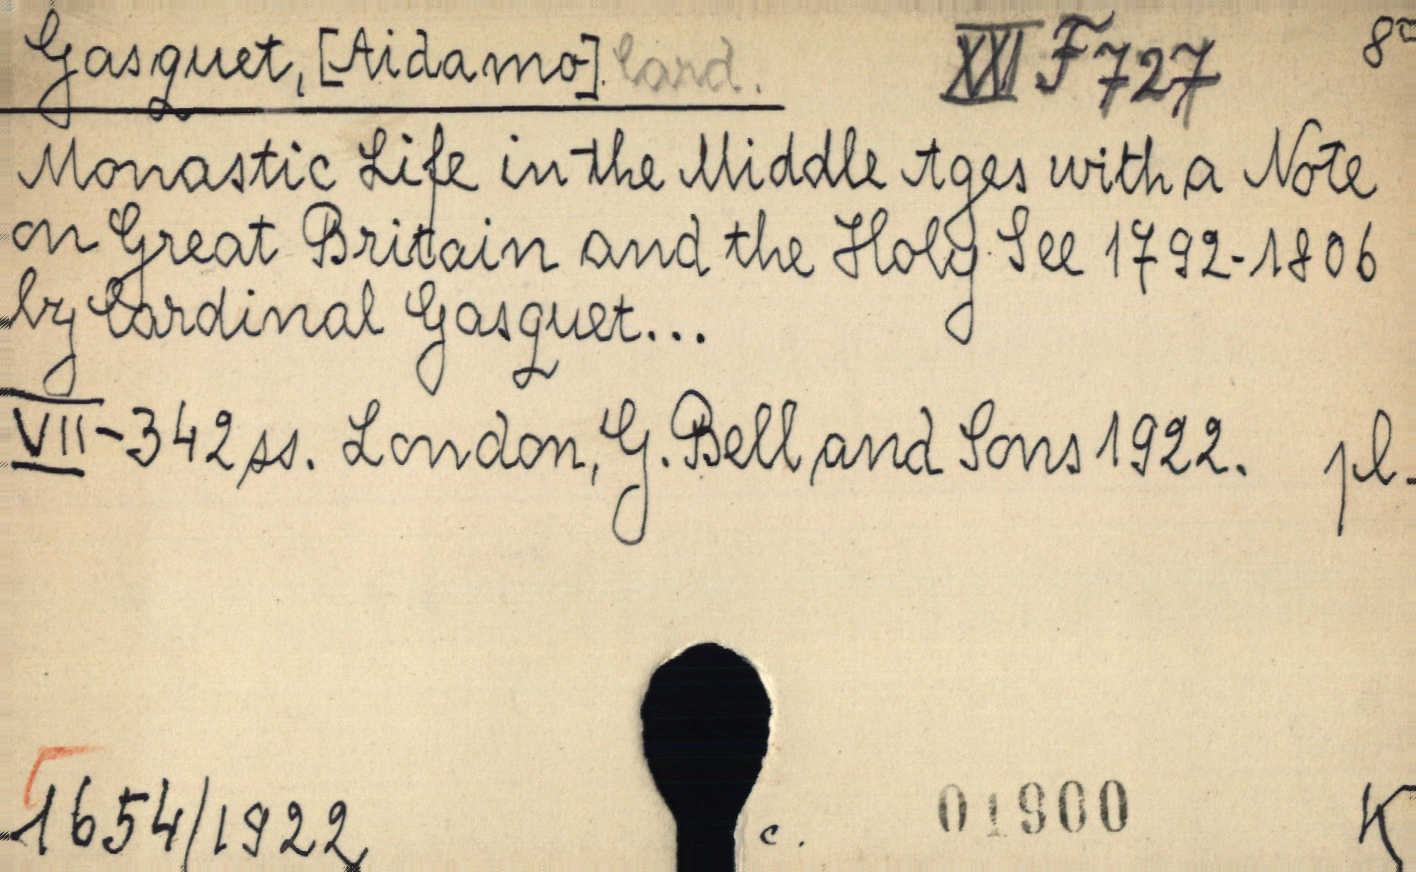 Gasquet, [Aidamo] Card. XXI F 727 8°
Monastic Life in the Middle Ages with a Note
on Great Britain and the Holy See 1792-1806
by Cardinal Gasquet...
VII-342 ss. London, G. Bell and Sons 1922. pl.
1654/1922 c. 01900 K